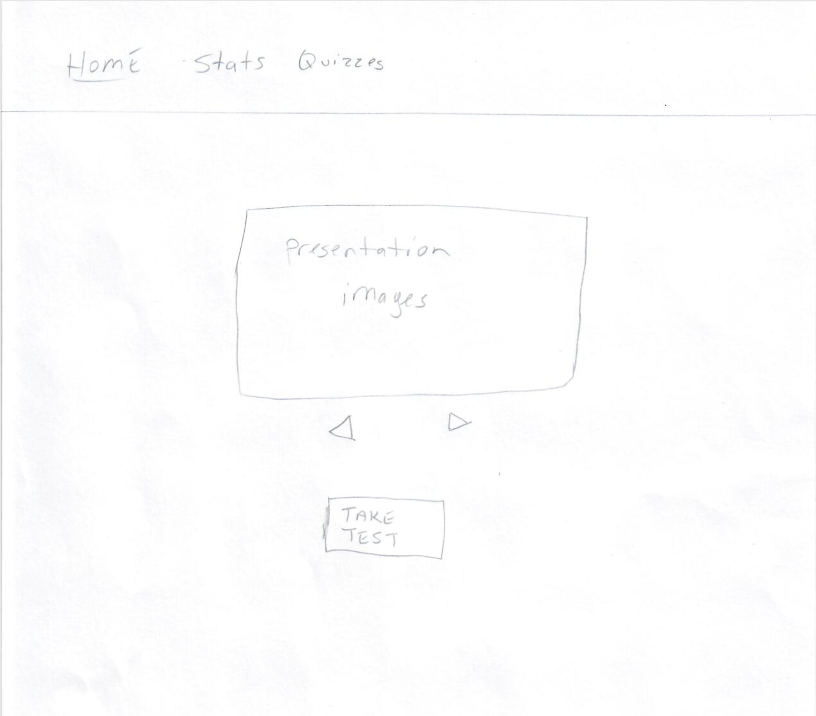 Home Stats Quizzes
Presentation
images
TAKE
TEST